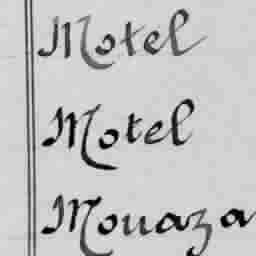 Motel
Motel
Mouaza